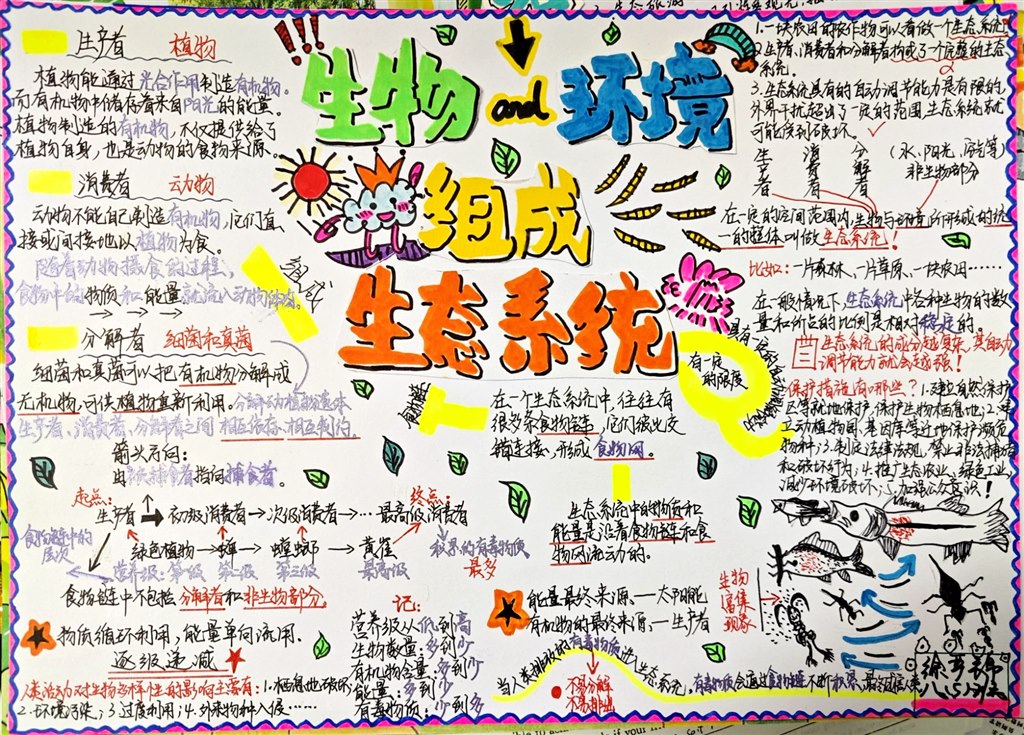 生物 and 环境
组成
生态系统
生产者 植物
植物能通过光合作用制造有机物。
而有机物中储存着来自阳光的能量。
植物制造的有机物,不仅提供给了
植物自身,也是动物的食物来源。
消费者 动物
动物不能自己制造有机物,它们直
接或间接地以植物为食。
随着动物摄食的过程,
食物中的物质和能量就流入动物体内。
分解者 细菌和真菌
细菌和真菌可以把有机物分解成
无机物,可供植物重新利用。分解动植物遗体
生产者、消费者、分解者之间相互依存、相互制约。
箭头方向:
由被捕食者指向捕食者。
起点: 终点:
生产者→初级消费者→次级消费者→…最高级消费者
食物链中的
层次
绿色植物→蝉→螳螂→黄雀
积累的有毒物质
最多
营养级:第一级 第二级 第三级 最高级
食物链中不包括分解者和非生物部分。
物质循环利用,能量单向流动。
逐级递减
人类活动对生物多样性的影响主要有:1.栖息地破坏;
2.环境污染;3.过度利用;4.外来物种入侵……
记:
营养级从低到高
生物数量:多到少
有机物含量:多到少
能量:多到少
有毒物质:少到多
在一个生态系统中,往往有
很多条食物链,它们彼此交
错连接,形成食物网。
生态系统中的物质和
能量是沿着食物链和食
物网流动的。
能量最终来源—太阳能
有机物的最终来源—生产者
当人类排放的有毒物质进入生态系统,有毒物质会通过食物链不断积累,最终危害人类
不易分解
不易排出
1.一块农田的农作物可以看做一个生态系统。
2.生产者、消费者和分解者构成了一个完整的生态
系统。
3.生态系统具有的自动调节能力是有限的,
外界干扰超出了一定的范围,生态系统就
可能受到破坏。
生产者 消费者 分解者 (水、阳光、空气等)
非生物部分
在一定的空间范围内,生物与环境所形成的统
一的整体叫做生态系统!
比如:一片森林、一片草原、一块农田……
在一般情况下,生态系统中各种生物的数
量和所占的比例是相对稳定的。
生态系统的成分越复杂,其自动
调节能力就会越强!
有一定
的限度
保护措施有哪些?1.建立自然保护
区等就地保护,保护生物栖息地;2.建
立动植物园、基因库等迁地保护濒危
物种;3.制定法律法规,禁止非法捕杀
和破坏行为;4.推广生态农业、绿色工业,
减少环境破坏;5.加强公众意识!
生物
富集
现象